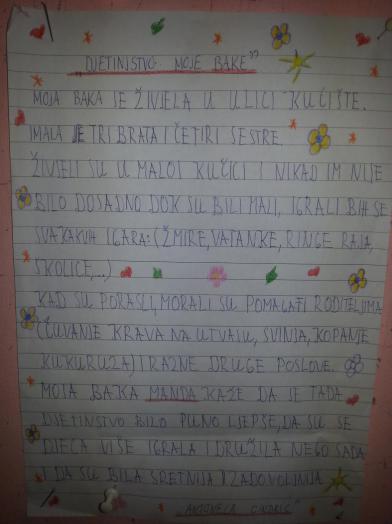 DJETINJSTVO MOJE BAKE"
MOJA BAKA JE ŽIVJELA U ULICI KUĆIŠTE.
IMALA JE TRI BRATA I ČETIRI SESTRE.
ŽIVJELI SU U MALOJ KUĆICI I NIKAD IM NIJE
BILO DOSADNO DOK SU BILI MALI, IGRALI BIH SE
SVAKAKVIH IGARA: (ŽMIRE, VATANKE, RINGE RAJA,
ŠKOLICE,...)
KAD SU PORASLI, MORALI SU POMAGATI RODITELJIMA
(ČUVANJE KRAVA NA UTVAJU, SVINJA, KOPANJE
KUKURUZA) I RAZNE DRUGE POSLOVE.
MOJA BAKA MANDA KAŽE DA JE TADA
DJETINSTVO BILO PUNO LJEPŠE, DA SU SE
DJECA VIŠE IGRALA I DRUŽILA NEGO SADA
I DA SU BILA SRETNIJA I ZADOVOLJNIJA
"ANTONELA